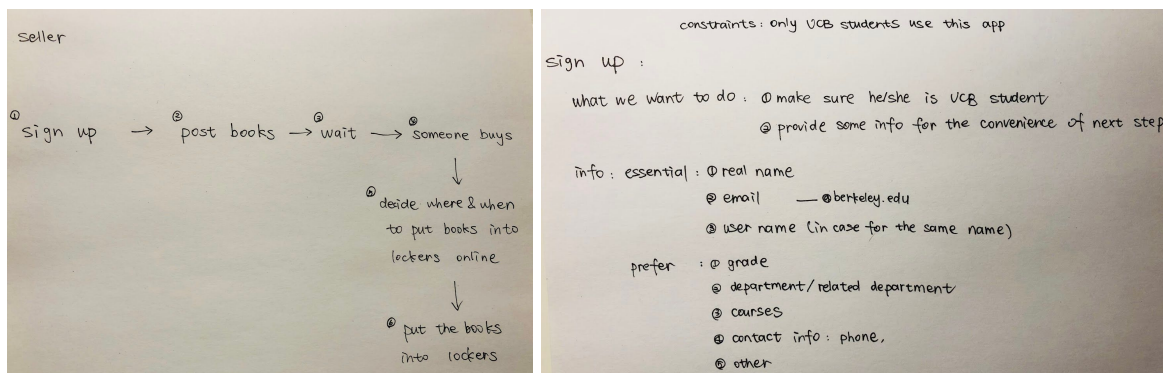 seller
① sign up → ② post books → ③ wait → ④ someone buys
⑤ decide where & when
to put books into
lockers online
⑥ put the books
into lockers
constraints: only UCB students use this app
sign up :
what we want to do : ① make sure he/she is UCB student
② provide some info for the convenience of next step
info : essential : ① real name
② email — @berkeley.edu
③ user name (in case for the same name)
prefer : ① grade
② department/related department
③ courses
④ contact info : phone,
⑤ other